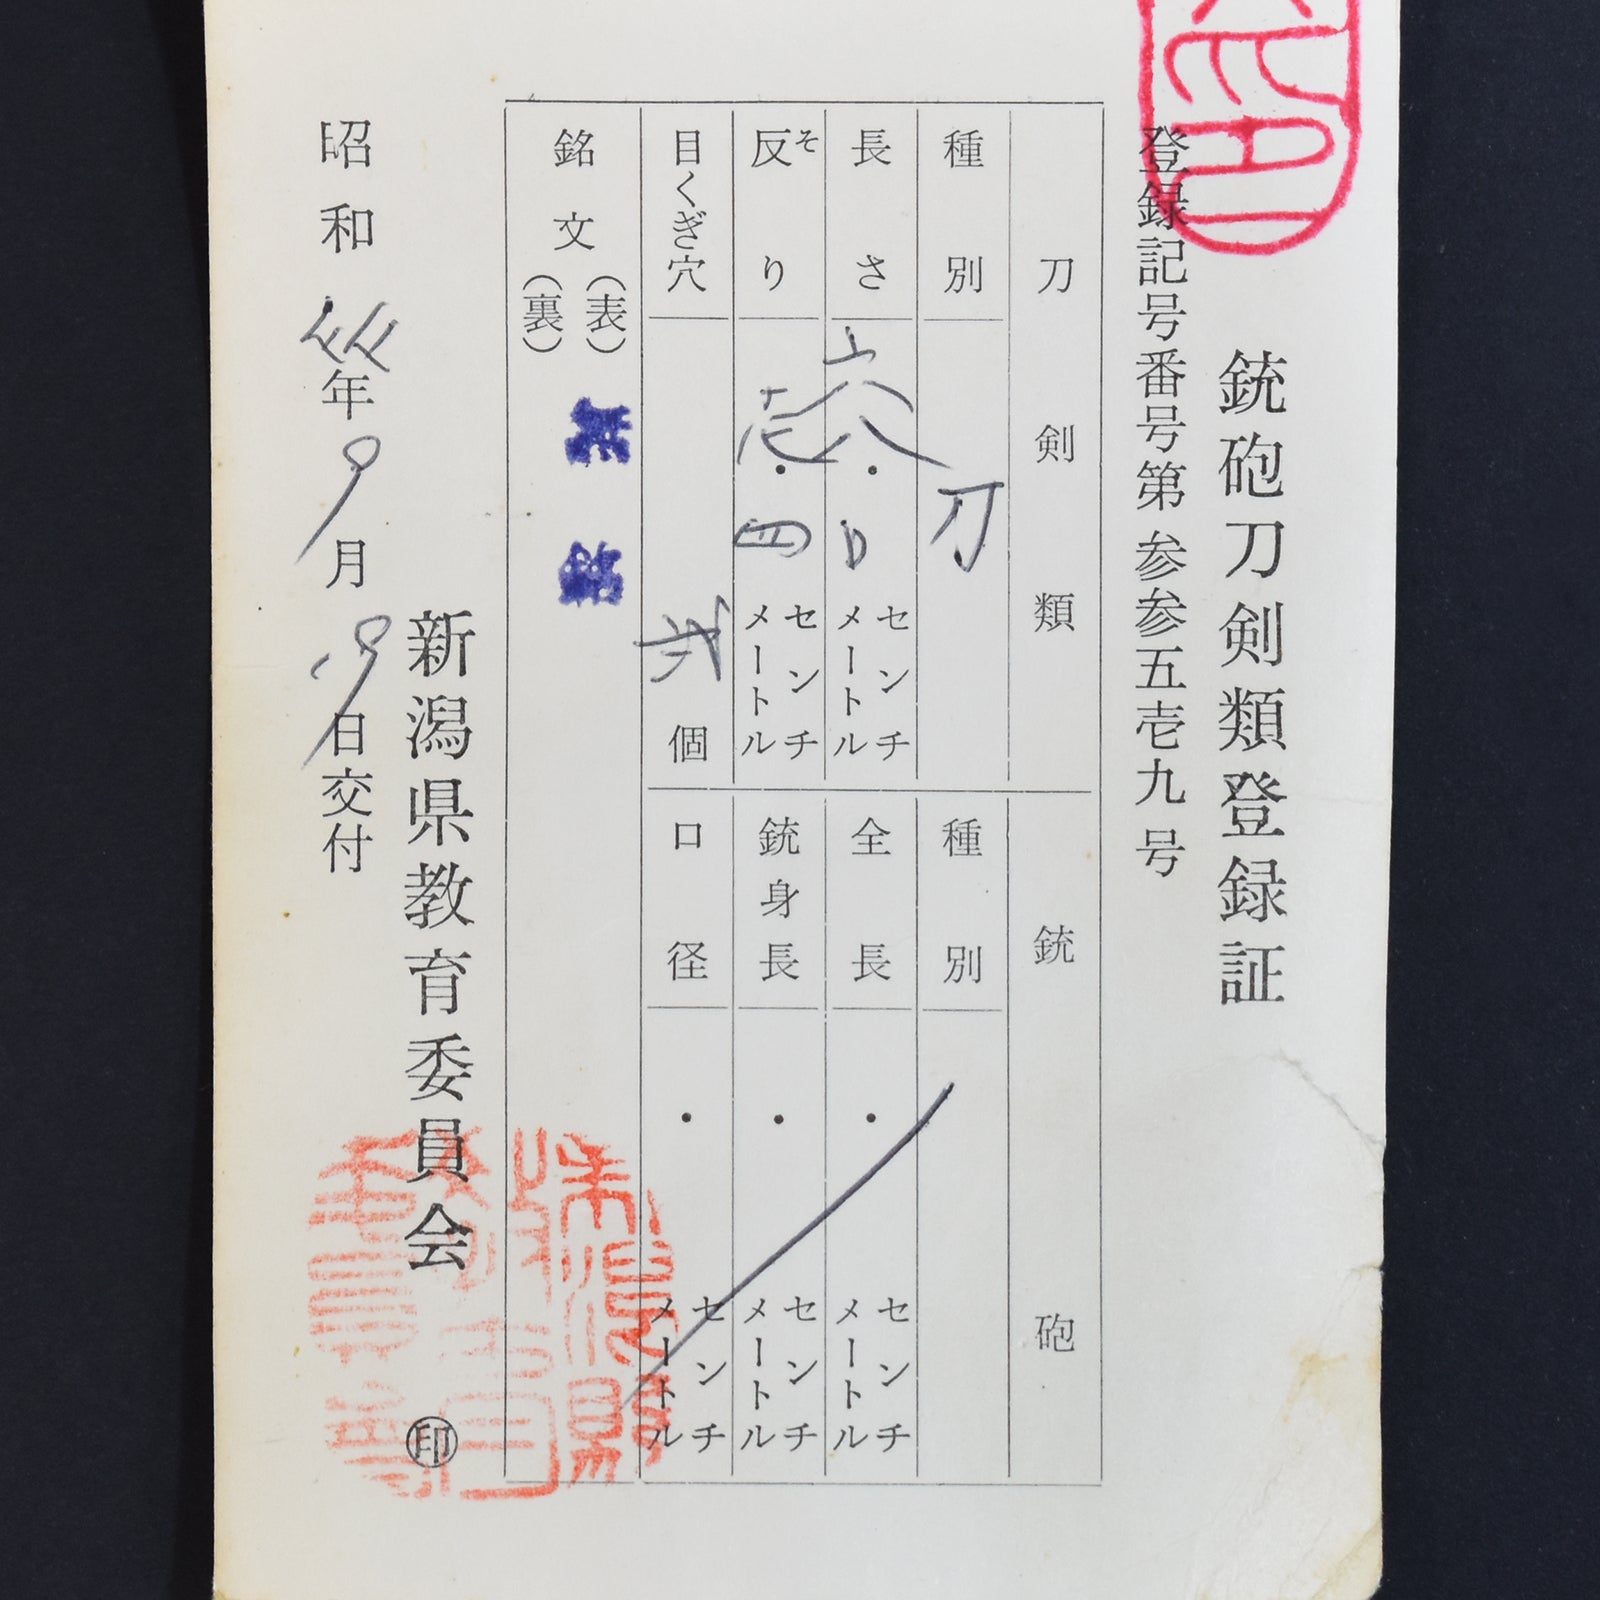 銃砲刀剣類登録証
登録記号番号第 参参五壱九 号
刀剣類
種別 刀
長さ 六八・0 センチメートル
反り そ 壱・四 センチメートル
目くぎ穴 弐 個
銃砲
種別
全長 ・ センチメートル
銃身長 ・ センチメートル
口径 ・ センチメートル
銘文 (表) 無銘
(裏)
新潟県教育委員会 ㊞
昭和 44年 9月 19日交付